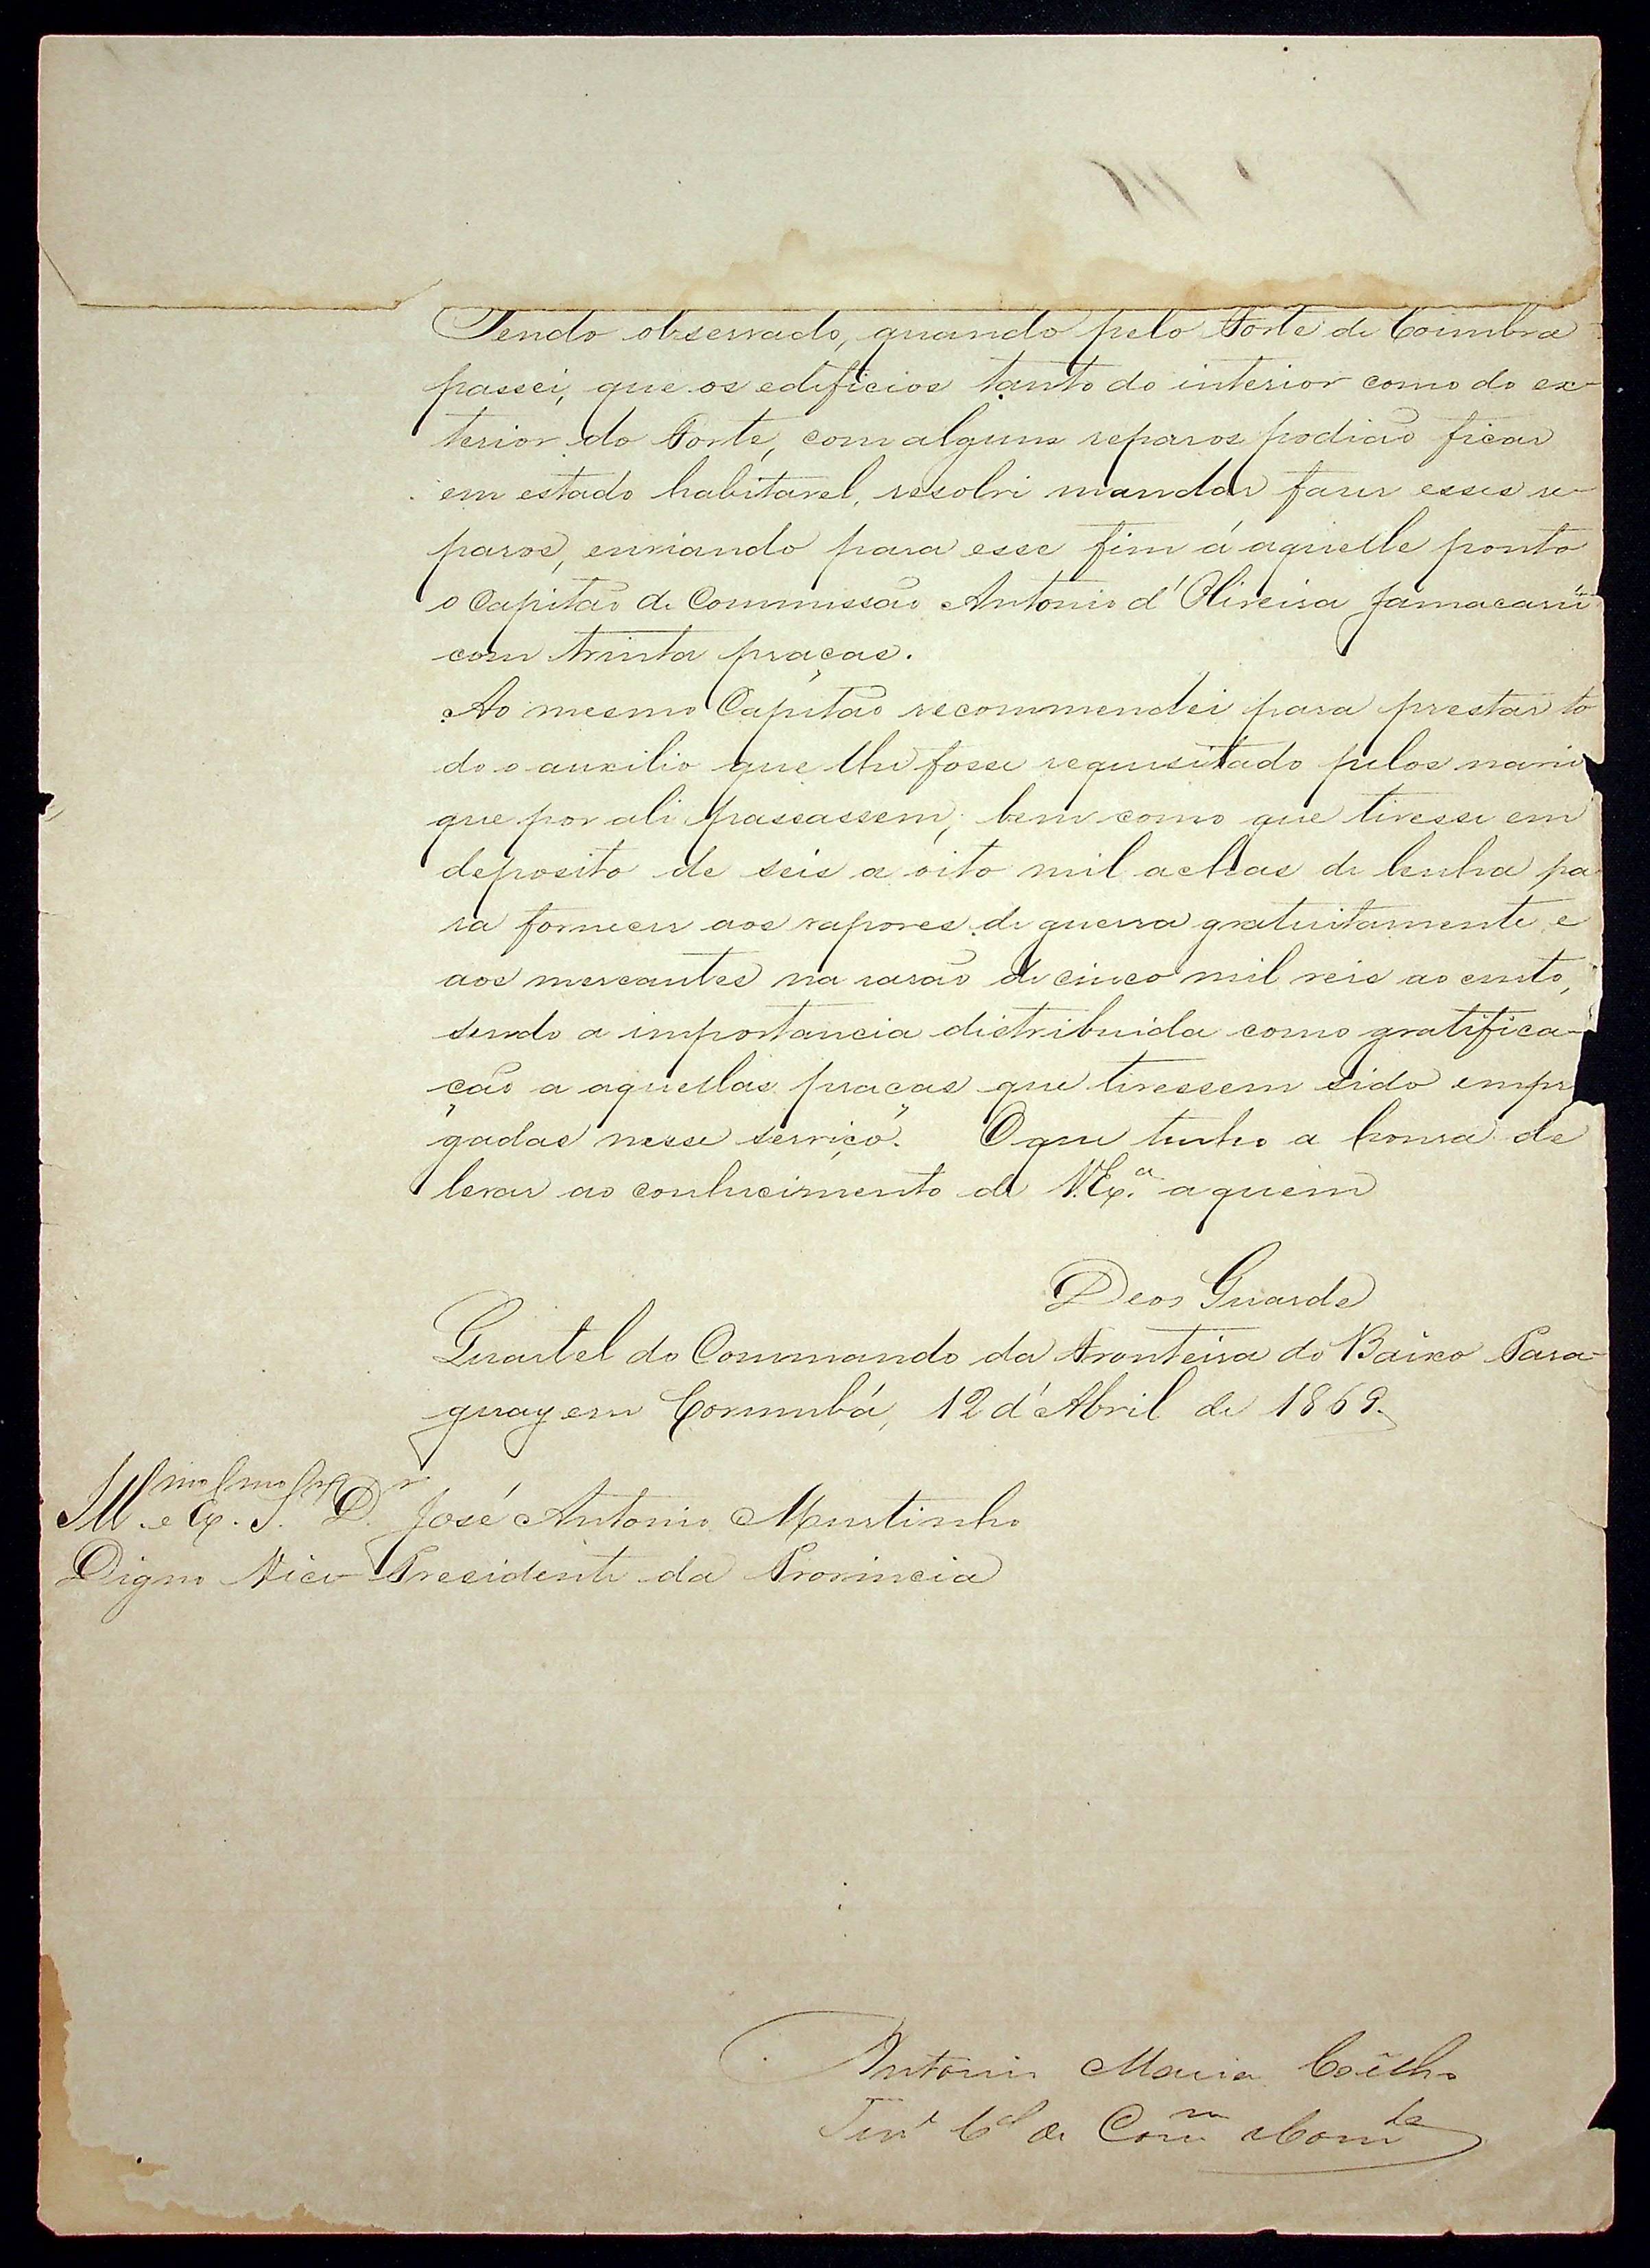 Tendo observado, quando pelo Forte de Coimbra
passei, que os edificios tanto do interior como do ex-
terior do Forte, com alguns reparos podião ficar
em estado habitavel, resolvi mandar faser esses re-
paros, enviando para esse fim á aquelle ponto
o Capitão de Commissão Antonio d'Oliveira Jamacarú
com trinta praças.
Ao mesmo Capitão recommendei para prestar to
do o auxilio que lhe fosse requisitado pelos navi
que por ali passassem; bem como que tivesse em
deposito de seis a oito mil achas de lenha pa
ra fornecer aos vapores de guerra gratuitamente, e
aos mercantes na rasão de cinco mil reis ao cento,
sendo a importancia distribuida como gratifica-
ção a aquellas praças que tivessem sido empr
gadas nesse serviço. O que tenho a honra de
levar ao conhecimento de V.Ex.ª a quem
Deos Guarde
Quartel do Commando da Fronteira do Baixo Para-
guay em Corumbá, 12 d'Abril de 1869.
Ill.mo e Ex.mo S.r D.r José Antonio Murtinho
Digno Vice-Presidente da Provincia
Antonio Maria Coêlho
Ten.e C.el de Com.m Com.te